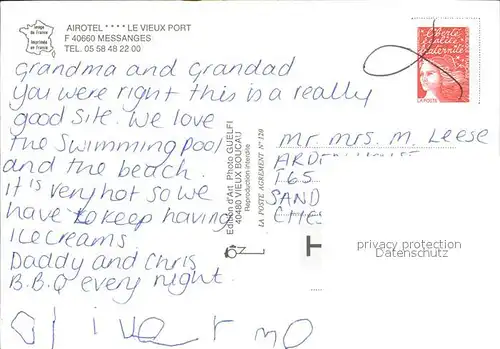 AIROTEL **** LE VIEUX PORT
F 40660 MESSANGES
TEL. 05 58 48 22 00
Image de France
Imprimée en France
Liberté égalité fraternité
LA POSTE
Grandma and Grandad
You were right this is a really
good site. We love
the Swimming pool
and the beach.
it is very hot so we
have to keep having
ice creams.
Daddy and Chris
B.B.Q every night.
Édition d'Art Photo GUELFI
40480 VIEUX BOUCAU
Reproduction interdite
LA POSTE AGREMENT N° 120
Mr Mrs. M. Leese
SAND
privacy protection
Datenschutz